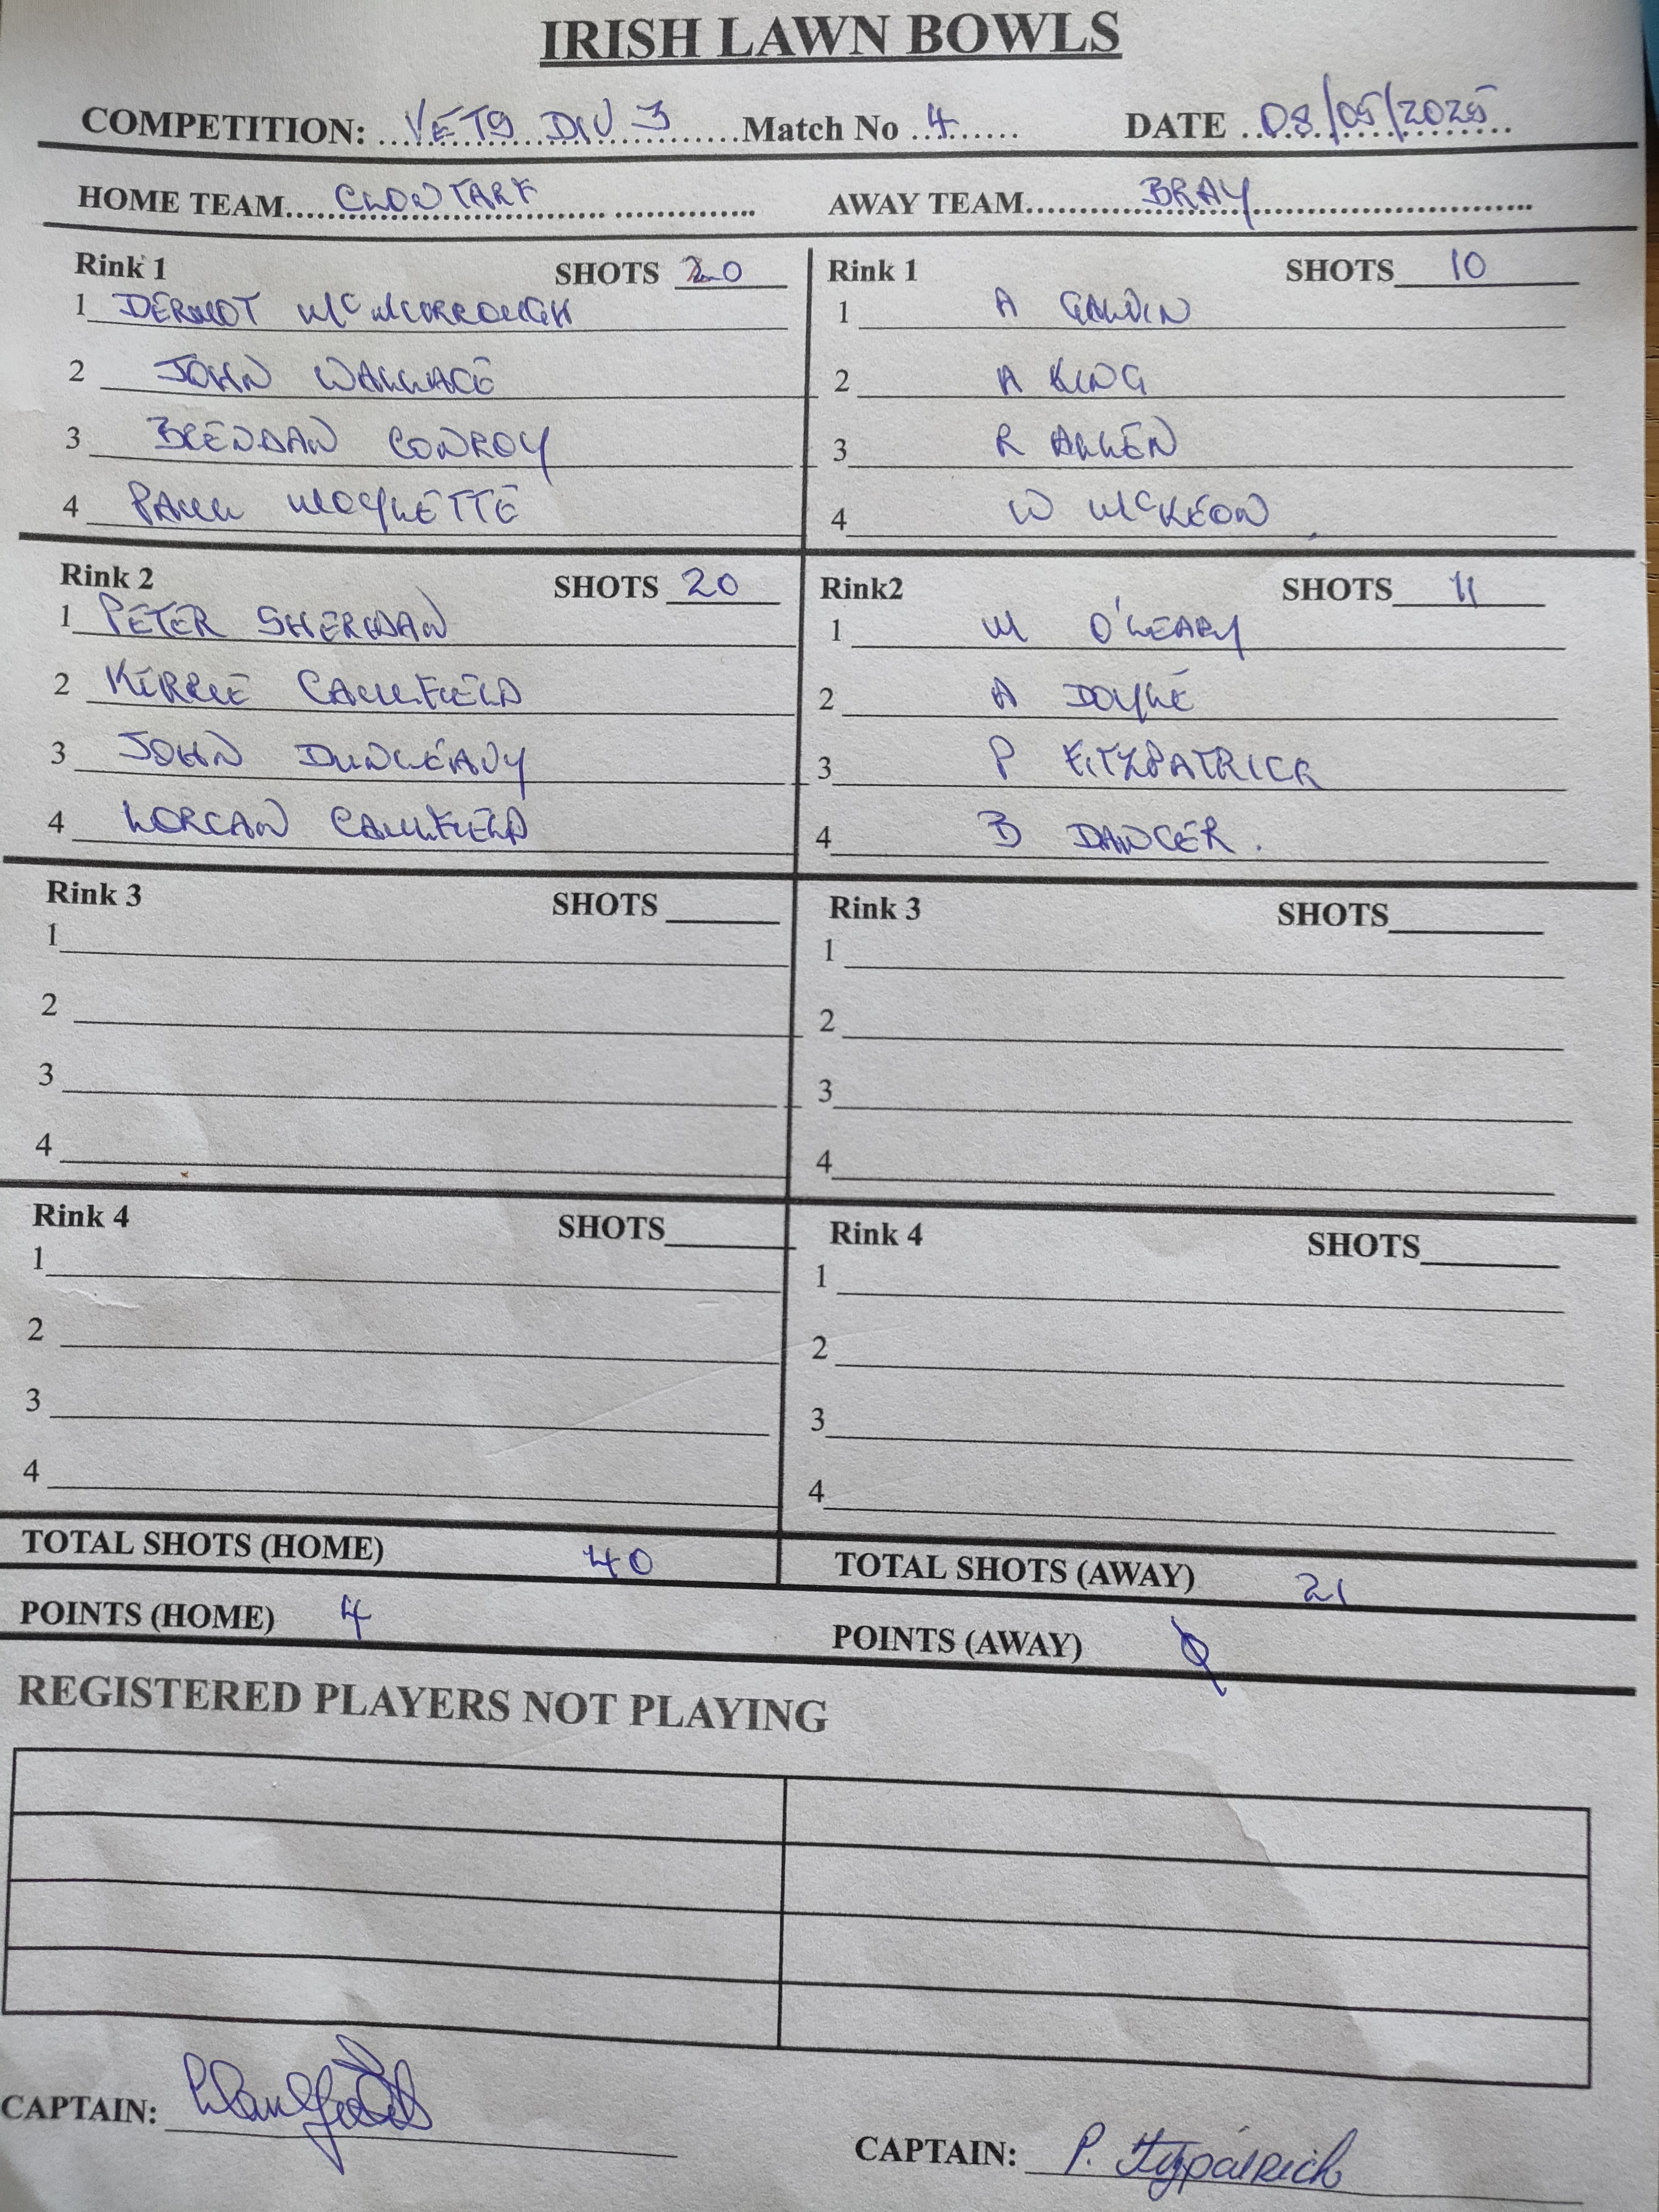 IRISH LAWN BOWLS
COMPETITION: VETS DIV 3 Match No 4 DATE 08/05/2025
HOME TEAM CLONTARF AWAY TEAM BRAY
Rink 1 SHOTS 20 Rink 1 SHOTS 10
1 DERMOT McMURROUGH 1 A GALVIN
2 JOHN WALLACE 2 A KING
3 BRENDAN CONROY 3 R ALLEN
4 PAUL MOYLETTE 4 W McKEON
Rink 2 SHOTS 20 Rink2 SHOTS 11
1 PETER SHERIDAN 1 M O'LEARY
2 KERRIE CAULFIELD 2 A DOYLE
3 JOHN DUNLEAVY 3 P FITZPATRICK
4 LORCAN CAULFIELD 4 B DANCER.
Rink 3 SHOTS Rink 3 SHOTS
1 1
2 2
3 3
4 4
Rink 4 SHOTS Rink 4 SHOTS
1 1
2 2
3 3
4 4
TOTAL SHOTS (HOME) 40 TOTAL SHOTS (AWAY) 21
POINTS (HOME) 4 POINTS (AWAY) 0
REGISTERED PLAYERS NOT PLAYING
CAPTAIN: CAPTAIN: P. Fitzpatrick